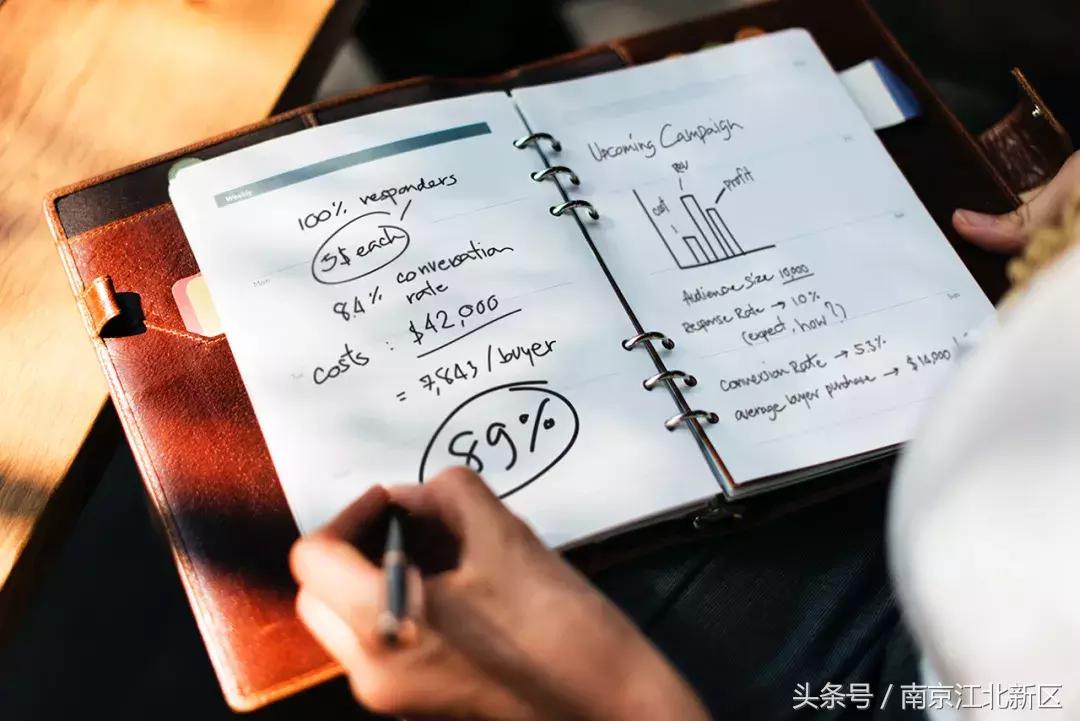 Weekly
100% responders
3$ each
Mon
8.4% conversation
rate
costs : $42,000
= 7,843/buyer
89%
Upcoming Campaign
cost
profit
Audience Size 10,000
Response Rate → 10%
(expect, how?)
Connexion Rate → 5.3%
average buyer purchase → $14,000
Sun
头条号 / 南京江北新区